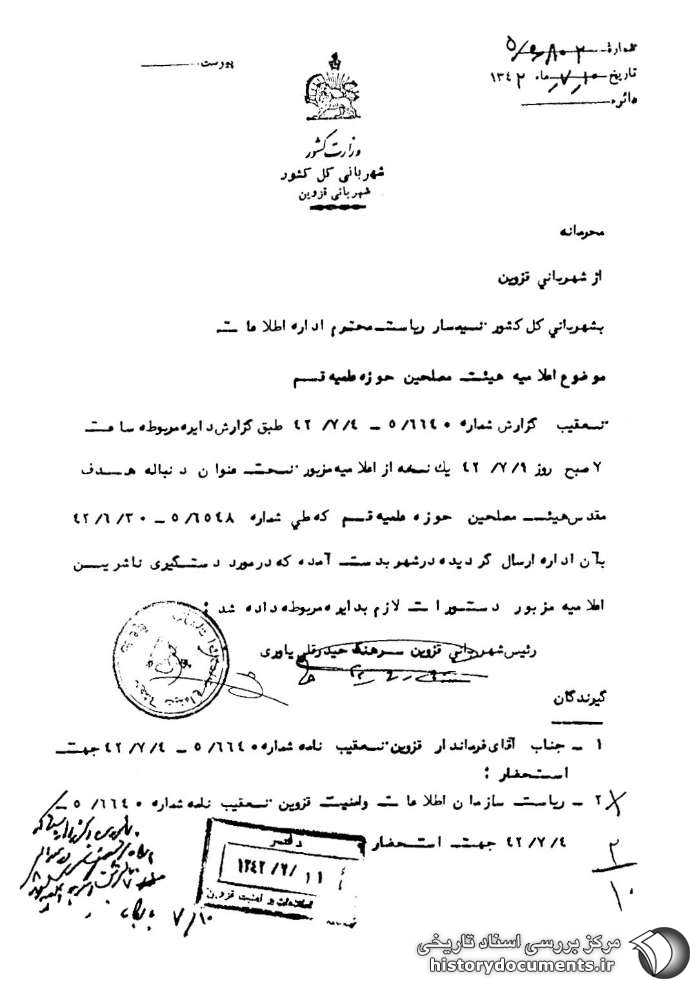 شماره ۵/۶۸۰۲
تاریخ ۱۰/۷/ ماه ۱۳۴۲
دائره
پیوست
وزارت کشور
شهربانی کل کشور
شهربانی قزوین
محرمانه
از شهربانی قزوین
بشهربانی کل کشور تیمسار ریاست محترم اداره اطلاعات
موضوع اعلامیه هیئت مصلحین حوزه علمیه قم
تعقیب گزارش شماره ۵/۶۶۴۰ ـ ۴۲/۷/۴ طبق گزارش دایره مربوطه ساعت
۷ صبح روز ۴۲/۷/۹ یك نسخه از اعلامیه مزبور تحت عنوان دنباله هدف
مقدس هیئت مصلحین حوزه علمیه قم که طی شماره ۵/۶۵۴۸ ـ ۴۲/۶/۳۰
بآن اداره ارسال گردیده در شهر بدست آمده که در مورد دستگیری ناشرین
اعلامیه مزبور دستورات لازم بدایره مربوطه داده شد :
رئیس شهربانی قزوین سرهنگ حیدرقلی یاوری
گیرندگان
۱ ـ جناب آقای فرماندار قزوین تعقیب نامه شماره ۵/۶۶۴۰ ـ ۴۲/۷/۴ جهت
استحضار :
۲ ـ ریاست سازمان اطلاعات وامنیت قزوین تعقیب نامه شماره ۵/۶۶۴۰ ـ
۴۲/۷/۴ جهت استحضار
۲
۱۰
دفتر
۱۳۴۲/۷/۱۱
اطلاعات و امنیت قزوین
۷/۱۰
مرکز بررسی اسناد تاریخی
historydocuments.ir